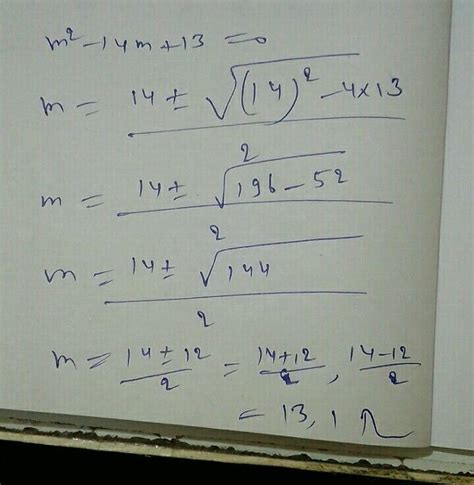 m² - 14m + 13 = 0
m = 14 ± √(14)² - 4×13 / 2
m = 14 ± √196 - 52 / 2
m = 14 ± √144 / 2
m = 14 ± 12 / 2 = 14+12 / 2 , 14-12 / 2
= 13, 1